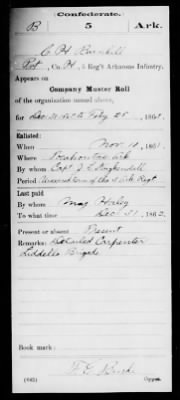 Confederate.
B 5 Ark.
C H
Pvt, Co. H, 5 Reg't Arkansas Infantry.
Appears on
Company Muster Roll
of the organization named above,
for Dec 31 1862 to Feby 28, 1863.
Enlisted:
When Nov 10, 1861.
Where Pocahontas Ark
By whom Capt
Period of the 5 Ark Regt
Last paid
By whom Maj
To what time Dec 31, 1862.
Present or absent Present
Remarks: Detailed Carpenter
Liddells Brigade
Book mark:
(642) Copyist.